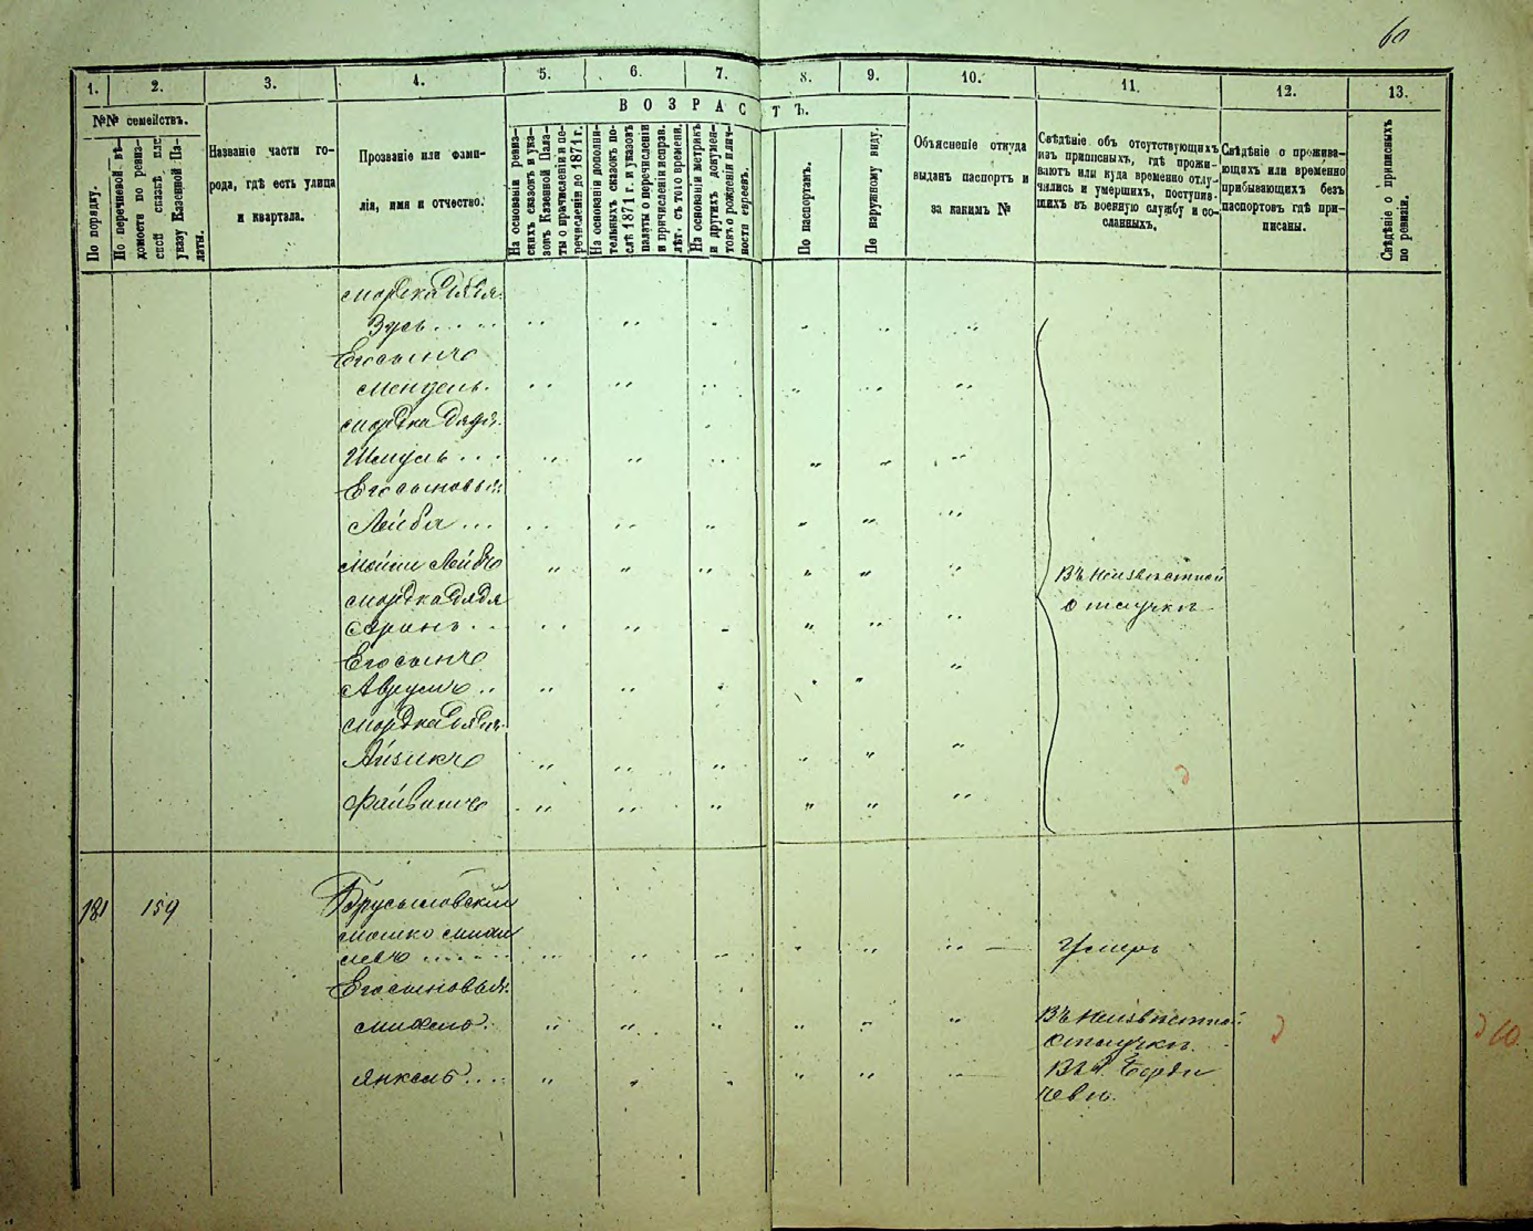 60
1.
2.
3.
4.
5.
6.
7.
8.
9.
10.
11.
12.
13.
№№ семействъ.
ВОЗРАСТЪ.
По порядку.
По перечневой вѣ-
домости по ревиз-
ской сказкѣ или
указу Казенной Па-
латы.
Названіе части го-
рода, гдѣ есть улица
и квартала.
Прозваніе или фами-
лія, имя и отчество.
На основаніи ревиз-
скихъ сказокъ и ука-
зовъ Казенной Пала-
ты о причисленіи и пе-
речисленіи до 1871 г.
На основаніи дополни-
тельныхъ сказокъ по-
слѣ 1871 г. и указовъ
палаты о перечисленіи
и причисленіи исправ.
лѣт. съ того времени.
На основаніи метрикъ
и другихъ докумен-
товъ о рожденіи лич-
ности евреевъ.
По паспортамъ.
По наружному виду.
Объясненіе откуда
выданъ паспортъ и
за какимъ №
Свѣдѣніе объ отсутствующихъ
изъ приписныхъ, гдѣ прожи-
ваютъ или куда временно отлу-
чились и умершихъ, поступив-
шихъ въ военную службу и со-
сланныхъ.
Свѣдѣніе о прожива-
ющихъ или временно
прибывающихъ безъ
паспортовъ гдѣ при-
писаны.
Свѣдѣніе о приписныхъ
по ревизіи.
Мордка дядя
Зусь
Его сынъ
Мендель.
Мордка дядя
Шмуль
Его сыновья:
Лейба
Мойше Лейбъ
Мордка дядя
Аронъ
Его сынъ
Аврумъ
Мордка дядя
Айзикъ
Файвишъ
Въ неизвѣстной
отлучкѣ
181 159 Брусиловскій
Мошко
Умеръ
Его сыновья:
Михель.
Въ неизвѣстной
отлучкѣ.
Янкель
Въ г. Берди
чевѣ.